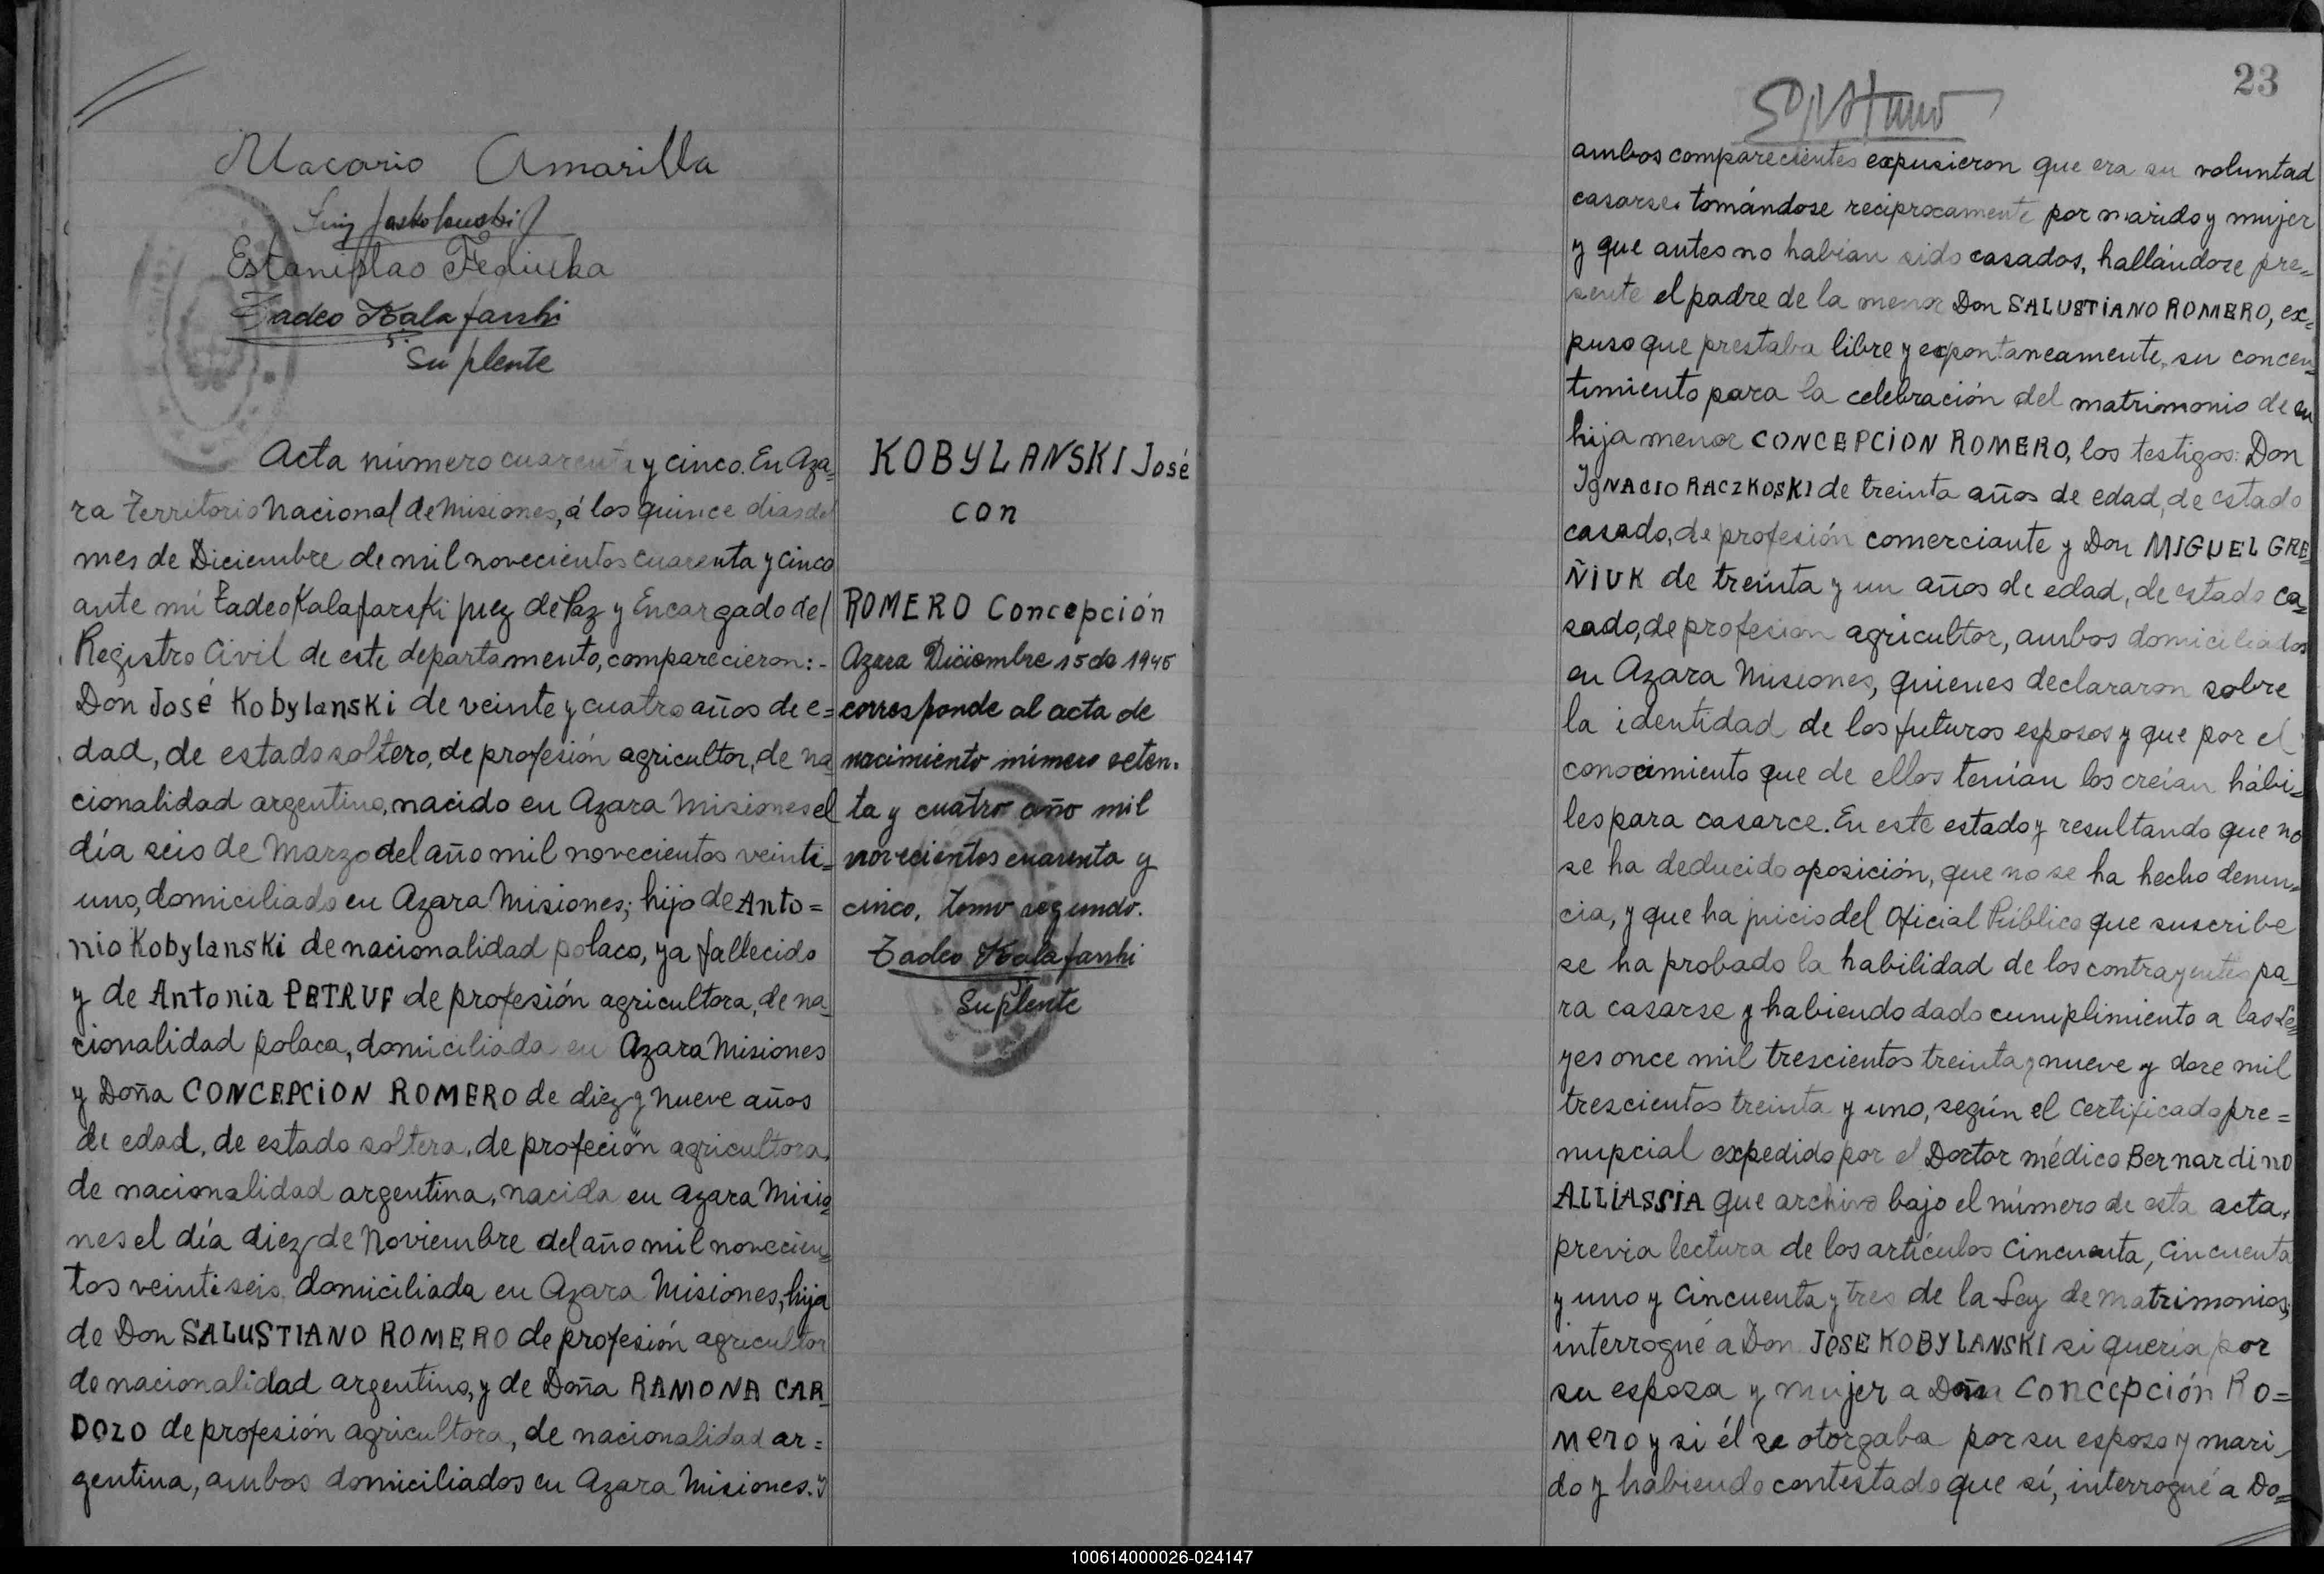 Macario Amarilla
Estanislao Fediuka
Tadeo Kalafarski
Suplente
Acta número cuarenta y cinco. En Aza=
ra territorio Nacional de Misiones, á los quince dias del
mes de Diciembre de mil novecientos cuarenta y cinco
ante mí Tadeo Kalafarski juez de Paz y Encargado del
Registro Civil de este departamento, comparecieron:-
Don José Kobylanski de veinte y cuatro años de e=
dad, de estado soltero, de profesión agricultor, de na=
cionalidad argentino, nacido en Azara Misiones el
día seis de Marzo del año mil novecientos veinti=
uno, domiciliado en Azara Misiones; hijo de Anto=
nio Kobylanski de nacionalidad polaco, ya fallecido
y de Antonia PETRUF de profesión agricultora, de na=
cionalidad polaca, domiciliada en Azara Misiones
y Doña CONCEPCION ROMERO de diez y nueve años
de edad, de estado soltera, de profeción agricultora,
de nacionalidad argentina, nacida en Azara Misio=
nes el día diez de Noviembre del año mil novecien=
tos veintiseis, domiciliada en Azara Misiones, hija
de Don SALUSTIANO ROMERO de profesión agricultor
de nacionalidad argentino, y de Doña RAMONA CAR=
DOZO de profesión agricultora, de nacionalidad ar=
gentina, ambos domiciliados en Azara Misiones. y
KOBYLANSKI José
con
ROMERO Concepción
Azara Diciembre 15 de 1945
corresponde al acta de
nacimiento número seten-
ta y cuatro año mil
novecientos cuarenta y
cinco, tomo segundo.
Tadeo Kalafarski
Suplente
23
ambos comparecientes expusieron que era su voluntad
casarse, tomándose reciprocamente por marido y mujer
y que antes no habían sido casados, hallándose pre=
sente el padre de la menor Don SALUSTIANO ROMERO, ex=
puso que prestaba libre y expontaneamente, su concen=
timiento para la celebración del matrimonio de su
hija menor CONCEPCION ROMERO, los testigos: Don
IGNACIO RACZKOSKI de treinta años de edad, de estado
casado, de profesión comerciante y Don MIGUEL GRE=
ÑIUK de treinta y un años de edad, de estado ca=
sado, de profesion agricultor, ambos domiciliados
en Azara Misiones, quienes declararon sobre
la identidad de los futuros esposos y que por el
conocimiento que de ellos tenían los creían hábi=
les para casarce. En este estado y resultando que no
se ha deducido oposición, que no se ha hecho denun=
cia, y que ha juicio del Oficial Público que suscribe
se ha probado la habilidad de los contrayentes pa=
ra casarse y habiendo dado cumplimiento a las Le=
yes once mil trescientos treinta y nueve y doce mil
trescientos treinta y uno, según el Certificado pre=
nupcial expedido por el Doctor médico Bernardino
ALLIASSIA que archivo bajo el número de esta acta,
previa lectura de los artículos Cincuenta, Cincuenta
y uno y Cincuenta y tres de la Ley de matrimonios,
interrogué a Don JOSE KOBYLANSKI si quería por
su esposa y mujer a Doña Concepción Ro=
mero y si él se otorgaba por su esposo y mari=
do y habiendo contestado que sí, interrogué a Do=
100614000026-024147